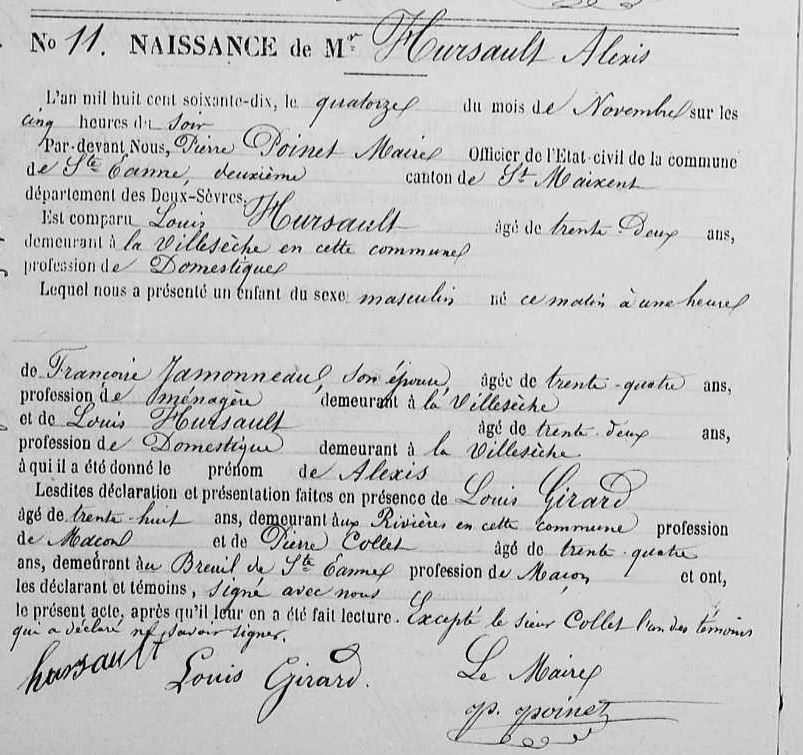 No 11. NAISSANCE de Mr Hursault Alexis
L'an mil huit cent soixante-dix, le quatorze du mois de Novembre sur les
cinq heures du soir
Par-devant Nous, Pierre Poinet Maire Officier de l'Etat-civil de la commune
de Ste Eanne, deuxième canton de St Maixent
département des Deux-Sèvres.
Est comparu Louis Hursault âgé de trente-deux ans,
demeurant à la Villesèche en cette commune
profession de Domestique
Lequel nous a présenté un enfant du sexe masculin né ce matin à une heure
de Françoise Jamonneau, son épouse, âgée de trente-quatre ans,
profession de ménagère demeurant à la Villesèche
et de Louis Hursault âgé de trente-deux ans,
profession de Domestique demeurant à la Villesèche
à qui il a été donné le prénom de Alexis
Lesdites déclaration et présentation faites en présence de Louis Girard
âgé de trente-huit ans, demeurant aux Rivières en cette commune profession
de Maçon et de Pierre Collet âgé de trente-quatre
ans, demeurant au Breuil de Ste Eanne profession de Maçon et ont,
les déclarant et témoins, signé avec nous
le présent acte, après qu'il leur en a été fait lecture. Excepté le sieur Collet l'un des témoins
qui a déclaré ne savoir signer.
hursault Louis Girard. Le Maire
p. poinet